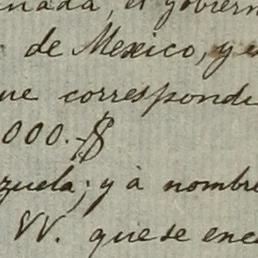 enada, el gobiern
de Mexico, y e
ue corresponde
000.-$
zuela; y à nombre
VV. que se enc